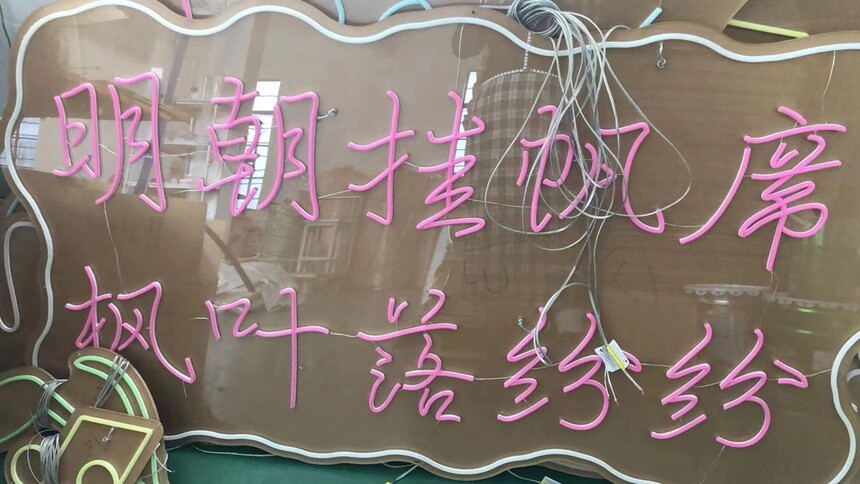 明朝挂帆席
枫叶落纷纷